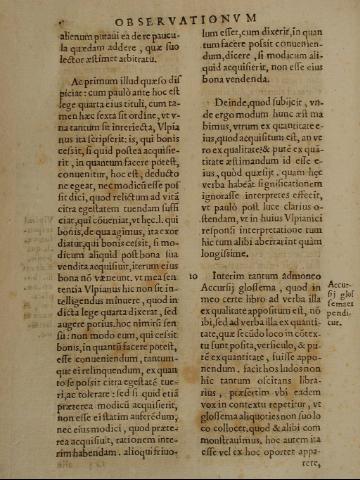 OBSERVATIONVM
alienum putaui ea de re paucu-
la quædam addere, quæ suo
lector æstimet arbitratu.
Ac primum illud quæso dis
piciat: cum paulò ante hoc est
lege quarta eius tituli, cum ta-
men hæc sexta sit ordine, vt v-
na tantum sit interiecta, Vlpia
nus ita scripserit: is, qui bonis
cessit, si quid postea acquisie-
rit, in quantum facere potest,
conuenitur, hoc est, deducto
ne egeat, nec modicũ esse pos
sit dici, quod relictum ad vitã
citra egestatem tuendam suffi
ciat, qui cõueniat, vt hęc. l. qui
bonis, de qua agimus, ita exor
diatur, qui bonis cessit, si mo-
dicum aliquid post bona sua
vendita acquisiuit, iterum eius
bona nõ væneunt. vt mea sen-
tentia Vlpianus hic non sit in-
telligendus minuere, quod in
dicta lege quarta dixerat, sed
augere potius. hoc nimirũ sen
su: non modo eum, qui cessit
bonis, in quantũ facere potest,
esse conueniendum, tantum-
que ei relinquendum, ex quan
to se possit citra egestatẽ tue-
ri, ac tolerare: sed si quid etiã
præterea modicũ acquisierit,
non esse ei statim auferẽdum,
nec eius modici, quod præte-
rea acquisiuit, rationem inte-
rim habendam. alioqui friuo-
lum esset, cum dixerit, in quan
tum facere possit conuenien-
dum, dicere, si modicum ali-
quid acquisierit, non esse eius
bona vendenda.
Deinde, quod subijcit, vn-
de ergo modum hunc æsti ma
bimus, vtrum ex quantitate e-
ius, quod acquisitum est, an ve
ro ex qualitate & putẽ ex quã-
titate æstimandum id esse e-
ius, quòd quæsijt, quam hęc
verba habeãt significationem
ignorasse interpretes effecit,
vt paulò post luce clarius o-
stendam, vt in huius Vlpianici
responsi interpretatione tum
hic tum alibi aberrarint quàm
longissime.
10 Interim tantum admoneo
Accursij glossema, quod in
meo certe libro ad verba illa
ex qualitate appositum est, nõ
ibi, sed ad verba illa ex quanti-
tate, quæ secũdo loco in cõtex-
tu sunt posita, versiculo, & pu-
tẽ ex quantitate, fuisse appo-
nendum. facit hos ludos non
hic tantum oscitans libra-
rius, præsertim vbi eadem
vox in contextu repetitur, vt
glossema aliquoties non suo lo
co collocet, quod & alibi com
monstrauimus. hoc autem ita
esse vel ex hoc oportet appa-
rere,
Accur-
sij glos
semati
pendi
tur.